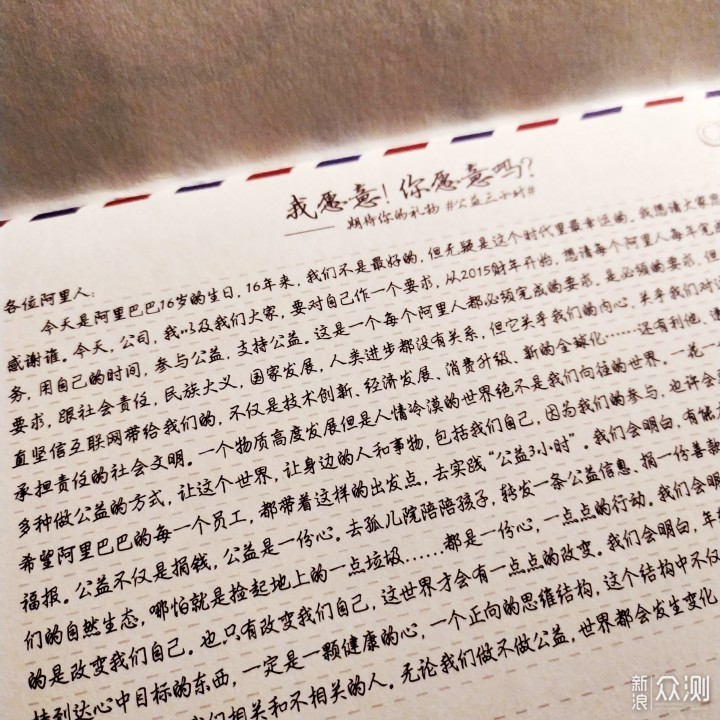 我愿意！你愿意吗？
—— 期待你的礼物 #公益三小时#
各位阿里人：
今天是阿里巴巴16岁的生日，16年来，我们不是最好的，但无疑是这个时代里最幸运的，我想请大家思
感谢谁。今天，公司，我以及我们大家，要对自己作一个要求，从2015财年开始，想请每个阿里人每年完
务，用自己的时间，参与公益，支持公益。这是一个每个阿里人都必须完成的要求，是必须的要求，但
要求，跟社会责任，民族大义，国家发展，人类进步都没有关系，但它关乎我们的内心，关乎我们对
直坚信互联网带给我们的，不仅是技术创新、经济发展、消费升级、新的全球化……还有利他，
承担责任的社会文明。一个物质高度发展但是人情冷漠的世界绝不是我们向往的世界。一花一
多种做公益的方式，让这个世界，让身边的人和事物，包括我们自己，因为我们的参与，也许会
希望阿里巴巴的每一个员工，都带着这样的出发点，去实践“公益3小时”。我们会明白，有能
福报。公益不仅是捐钱，公益是一份心。去孤儿院陪陪孩子，转发一条公益信息、捐一份善款
们的自然生态，哪怕就是捡起地上的一点垃圾……都是一份心，一点点的行动。我们会明
的是改变我们自己。也只有改变我们自己，这世界才会有一点点的改变。我们会明白，年
持到达心中目标的东西，一定是一颗健康的心，一个正向的思维结构，这个结构中不仅
们相关和不相关的人。无论我们做不做公益，世界都会发生变化
新浪 众测